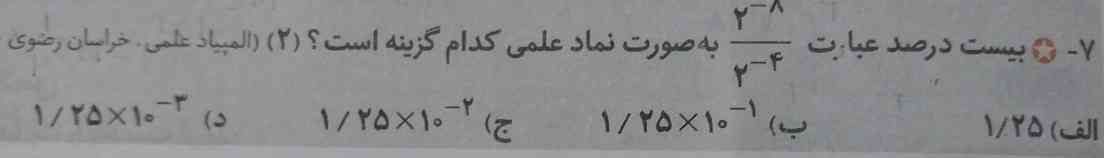 ۷- بیست درصد عبارت ۲^{-۸}/۲^{-۴} به صورت نماد علمی کدام گزینه است؟ (۲) (المپیاد علمی - خراسان رضوی
الف) ۱/۲۵ ب) ۱/۲۵×۱۰^{-۱} ج) ۱/۲۵×۱۰^{-۲} د) ۱/۲۵×۱۰^{-۳}